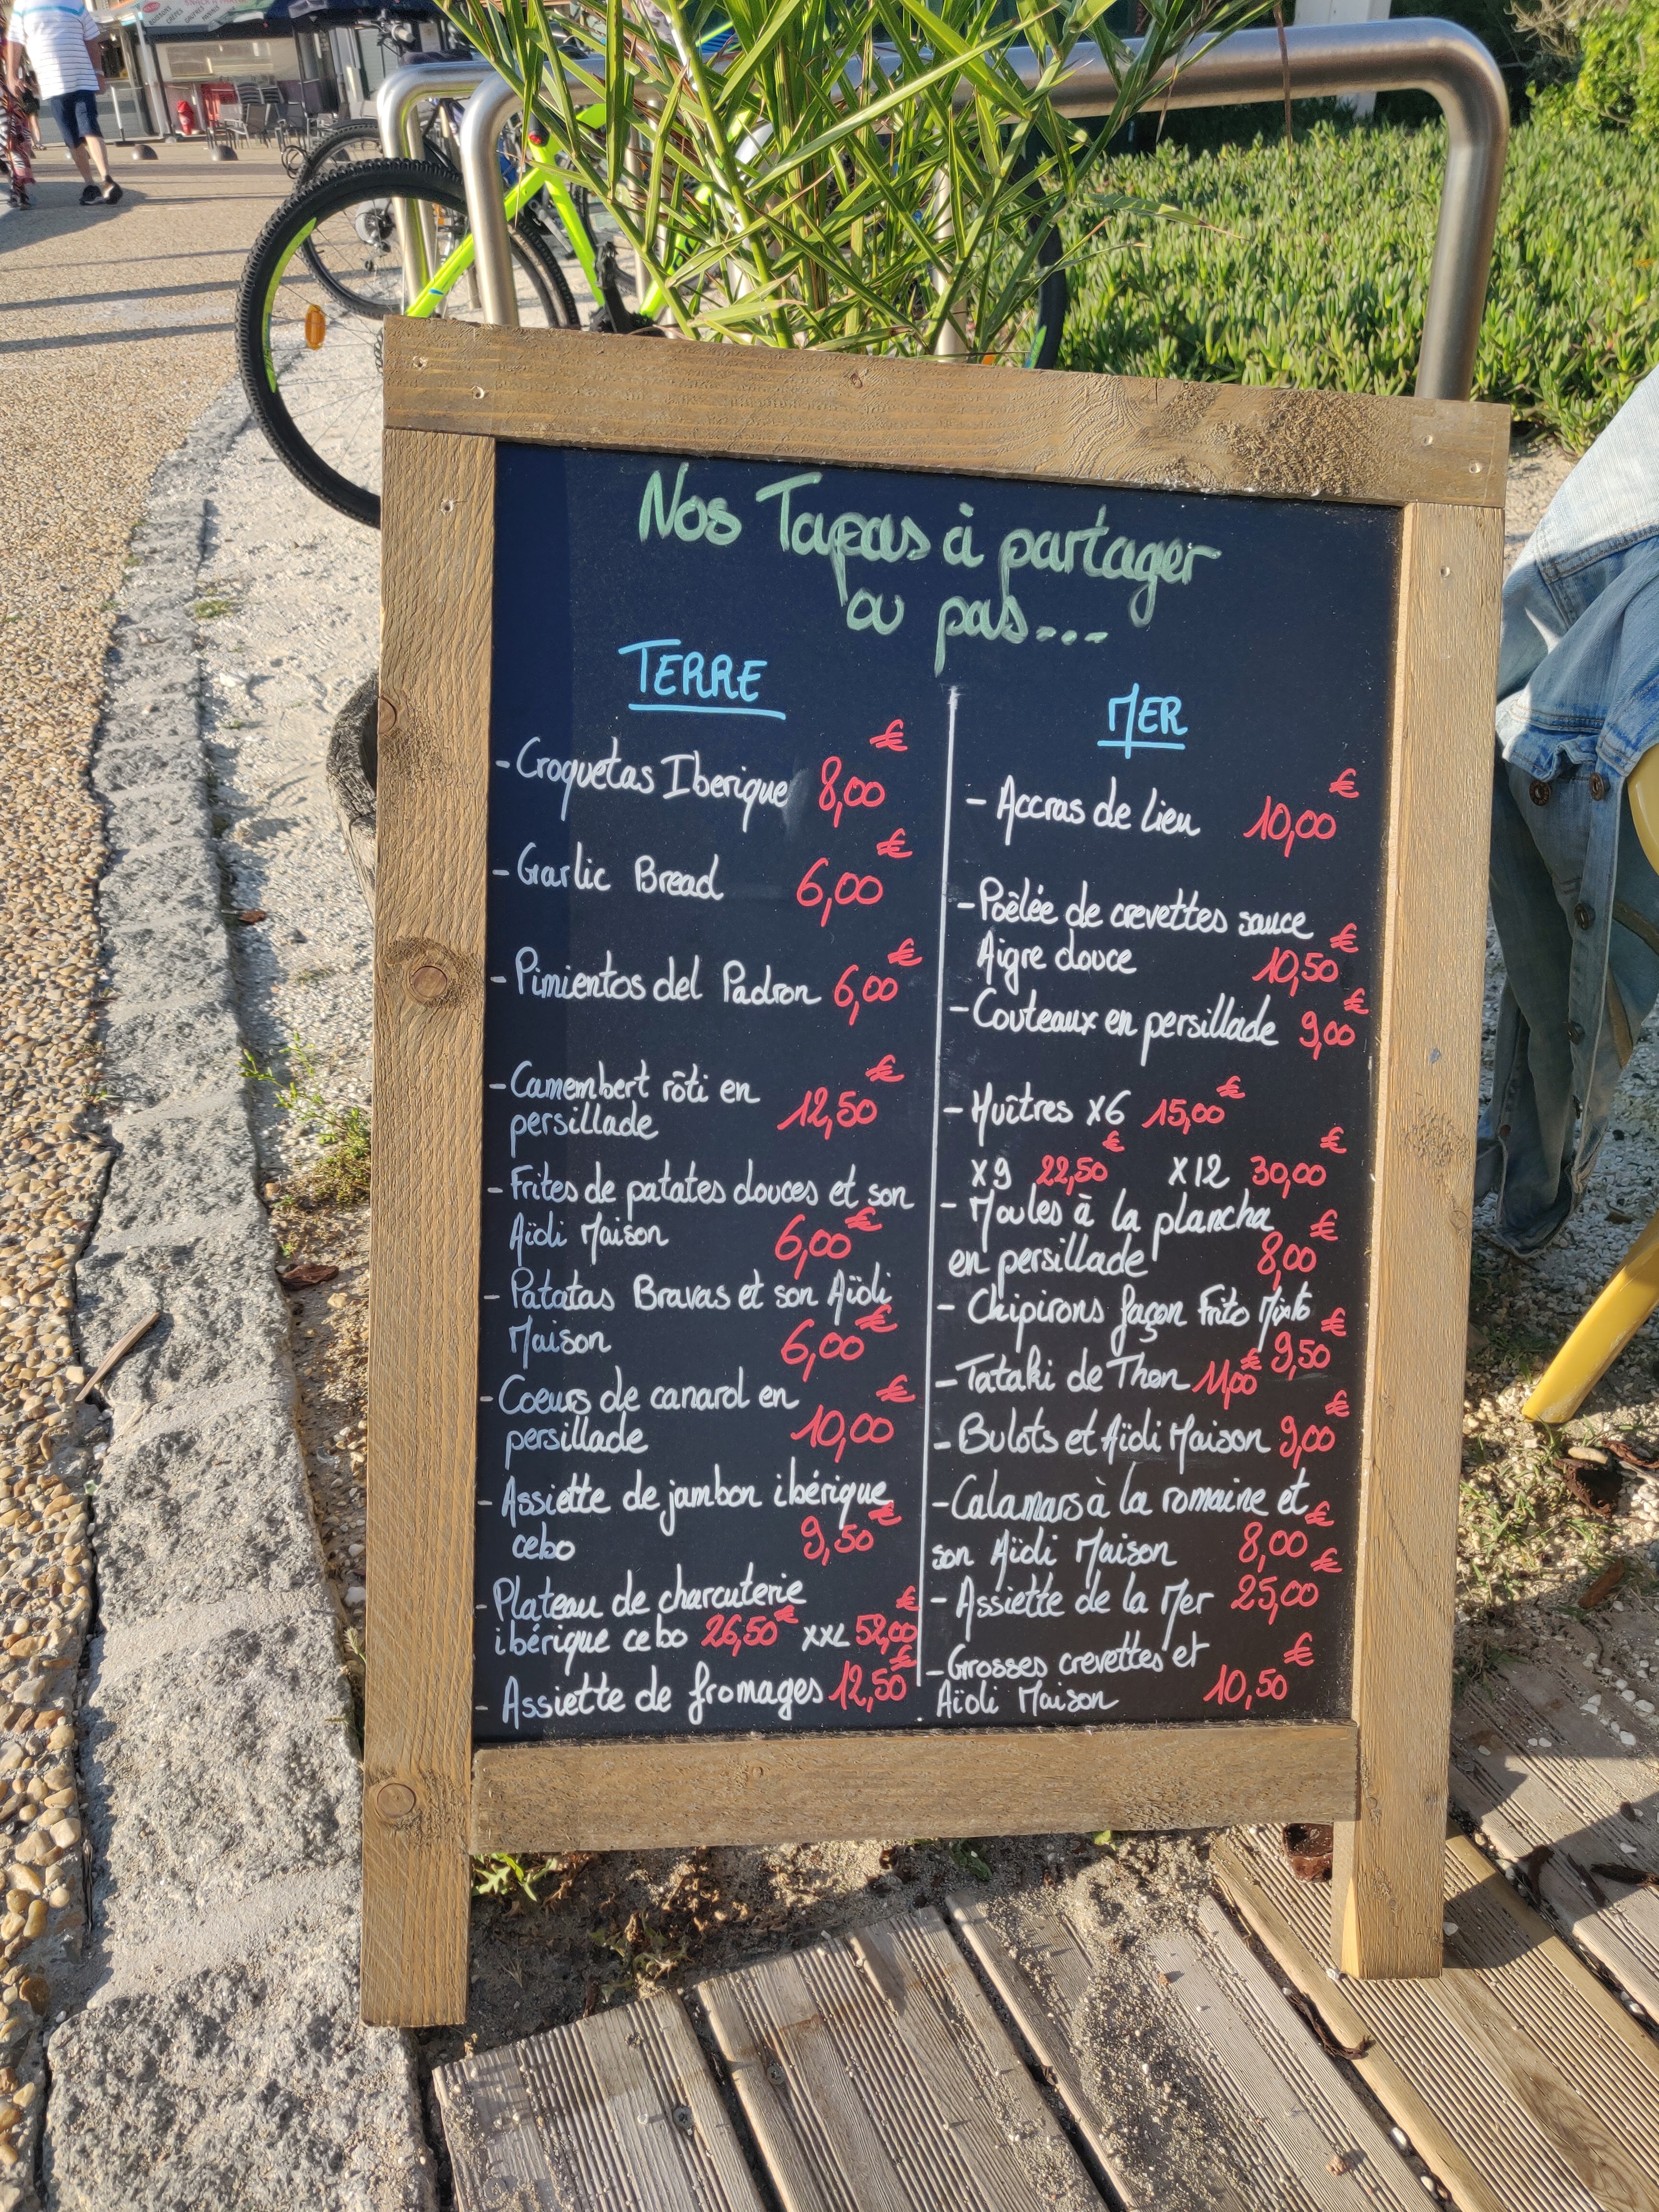 Nos Tapas à partager
ou pas...
TERRE
- Croquetas Iberique 8,00€
- Garlic Bread 6,00€
- Pimientos del Padron 6,00€
- Camembert rôti en
persillade 12,50€
- Frites de patates douces et son
Aïoli Maison 6,00€
- Patatas Bravas et son Aïoli
Maison 6,00€
- Coeurs de canard en
persillade 10,00€
- Assiette de jambon ibérique
cebo 9,50€
- Plateau de charcuterie
ibérique cebo 26,50€ XXL 52,00€
- Assiette de fromages 12,50€
MER
- Accras de Lieu 10,00€
- Poêlée de crevettes sauce
Aigre douce 10,50€
- Couteaux en persillade 9,00€
- Huîtres X6 15,00€
X9 22,50€ X12 30,00€
- Moules à la plancha
en persillade 8,00€
- Chipirons façon Frito Mixto
9,50€
- Tataki de Thon 11,00€
- Bulots et Aïoli Maison 9,00€
- Calamars à la romaine et
son Aïoli Maison 8,00€
- Assiette de la Mer 25,00€
- Grosses crevettes et
Aïoli Maison 10,50€